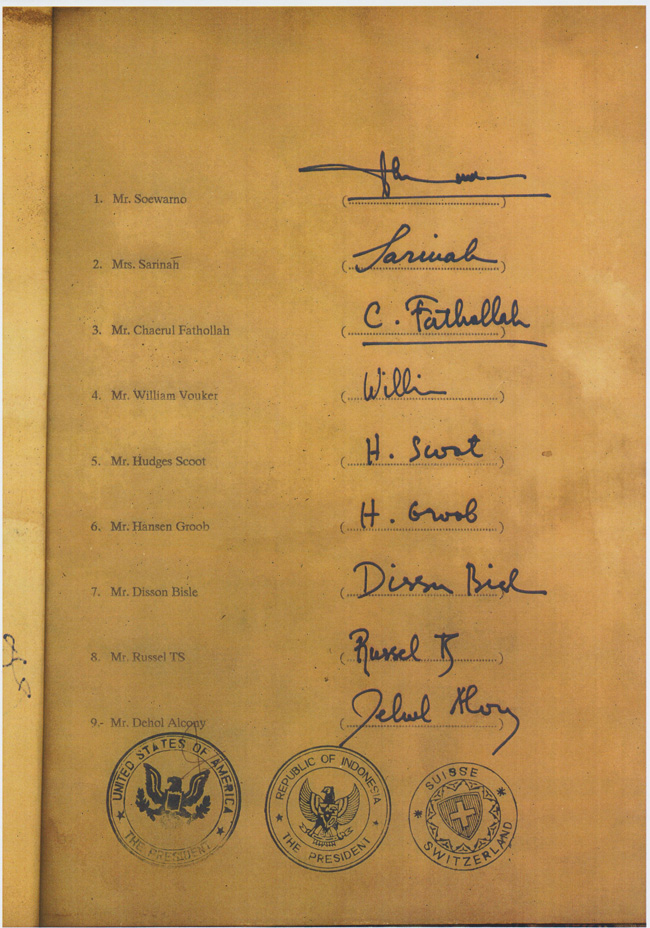 1. Mr. Soewarno (........)
2. Mrs. Sarinah (Sarinah)
3. Mr. Chaerul Fathollah (C. Fathollah)
4. Mr. William Vouker (Willi)
5. Mr. Hudges Scoot (H. Scoot)
6. Mr. Hansen Groob (H. Groob)
7. Mr. Disson Bisle (Disson Bisl)
8. Mr. Russel TS (Russel TS)
9.- Mr. Dehol Alcony (Dehol Alcony)
UNITED STATES OF AMERICA
THE PRESIDENT
REPUBLIC OF INDONESIA
THE PRESIDENT
SUISSE
SWITZERLAND